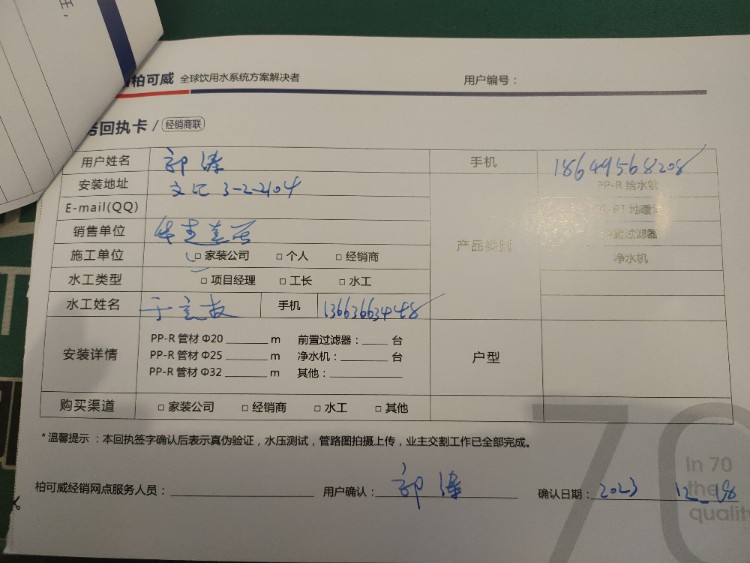 柏可威 全球饮用水系统方案解决者 用户编号：
回执卡 / 经销商联
用户姓名 郭涛 手机 18649568208
安装地址 文汇 3-2-2104 PP-R 给水管
E-mail(QQ)
销售单位 产品类别 过滤器
施工单位 □ 家装公司 □ 个人 □ 经销商 净水机
水工类型 □ 项目经理 □ 工长 □ 水工
水工姓名 手机 13663663448
安装详情 PP-R 管材 Φ20 m 前置过滤器： 台 户型
PP-R 管材 Φ25 m 净水机： 台
PP-R 管材 Φ32 m 其他：
购买渠道 □ 家装公司 □ 经销商 □ 水工 □ 其他
* 温馨提示 ：本回执签字确认后表示真伪验证，水压测试，管路图拍摄上传，业主交割工作已全部完成。
柏可威经销网点服务人员： 用户确认： 郭涛 确认日期： 2023
70
In 70
the
quality